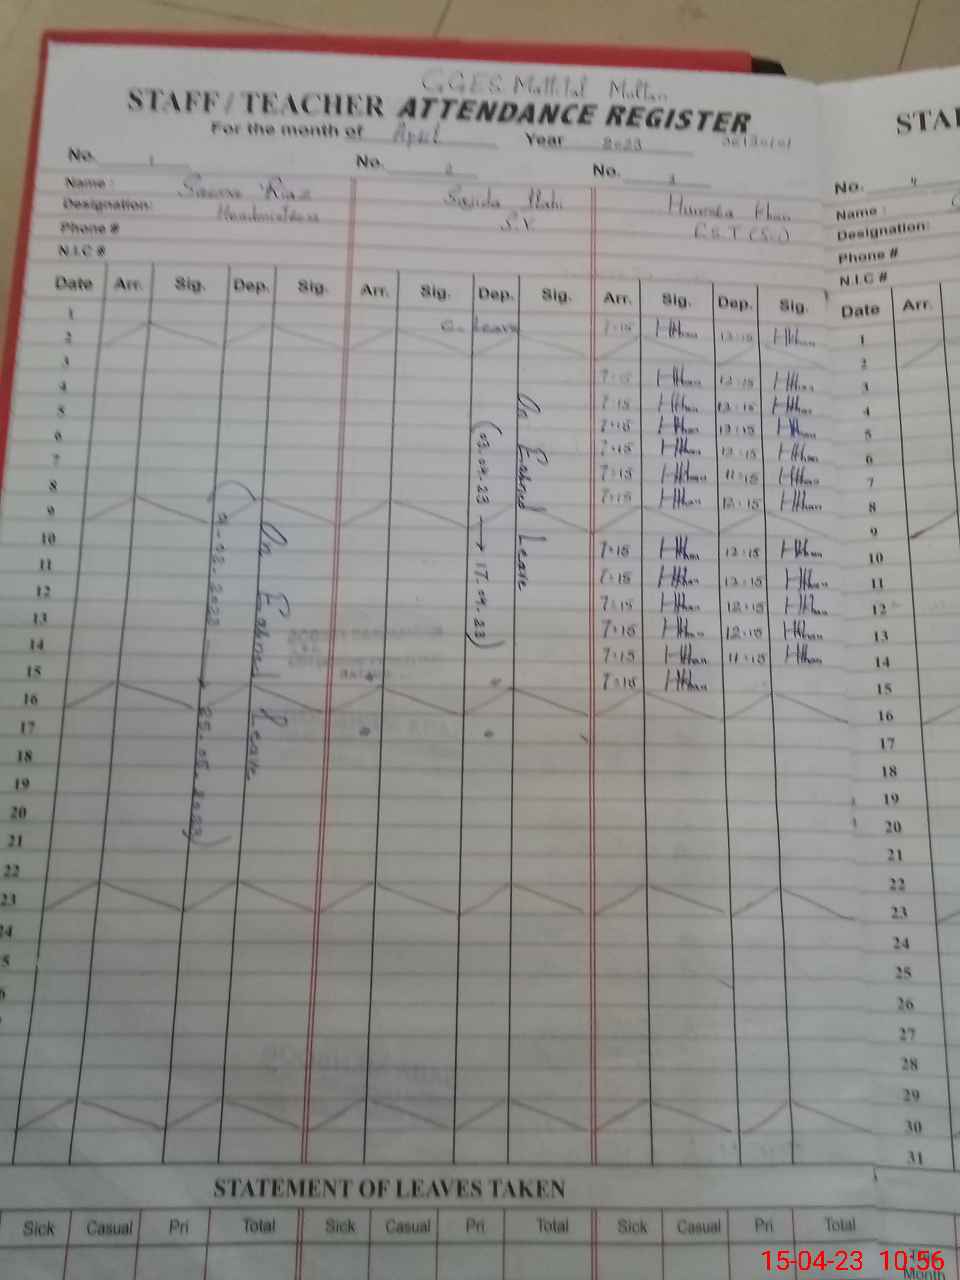 G.G.E.S. Mattital Multan
STAFF / TEACHER ATTENDANCE REGISTER
For the month of April Year 2023
No. 1 No. 2 No. 3
Name : Riaz Sajida Khan
Designation: Headmistress S.V
Phone #
N.I.C #
Date Arr. Sig. Dep. Sig. Arr. Sig. Dep. Sig. Arr. Sig. Dep. Sig.
1 C. Leave 7:15 HKhan 12:15 HKhan
2
3 7:15 HKhan 12:15 HKhan
4 7:15 HKhan 12:15 HKhan
5 7:15 HKhan 12:15 HKhan
6 7:15 HKhan 12:15 HKhan
7 7:15 HKhan 11:15 HKhan
8 7:15 HKhan 12:15 HKhan
9
10 7:15 HKhan 12:15 HKhan
11 7:15 HKhan 12:15 HKhan
12 7:15 HKhan 12:15 HKhan
13 7:15 HKhan 12:15 HKhan
14 7:15 HKhan 11:15 HKhan
15 7:15 HKhan
16
17
18
19
20
21
22
23
24
On Leave
2023)
On Leave
(03.04.23 → 17.04.23)
STATEMENT OF LEAVES TAKEN
Sick Casual Pri Total Sick Casual Pri Total Sick Casual Pri Total
No. 4
Name :
Designation:
Phone #
N.I.C #
Date Arr.
1
2
3
4
5
6
7
8
9
10
11
12
13
14
15
16
17
18
19
20
21
22
23
24
25
26
27
28
29
30
31
Month
15-04-23 10:56